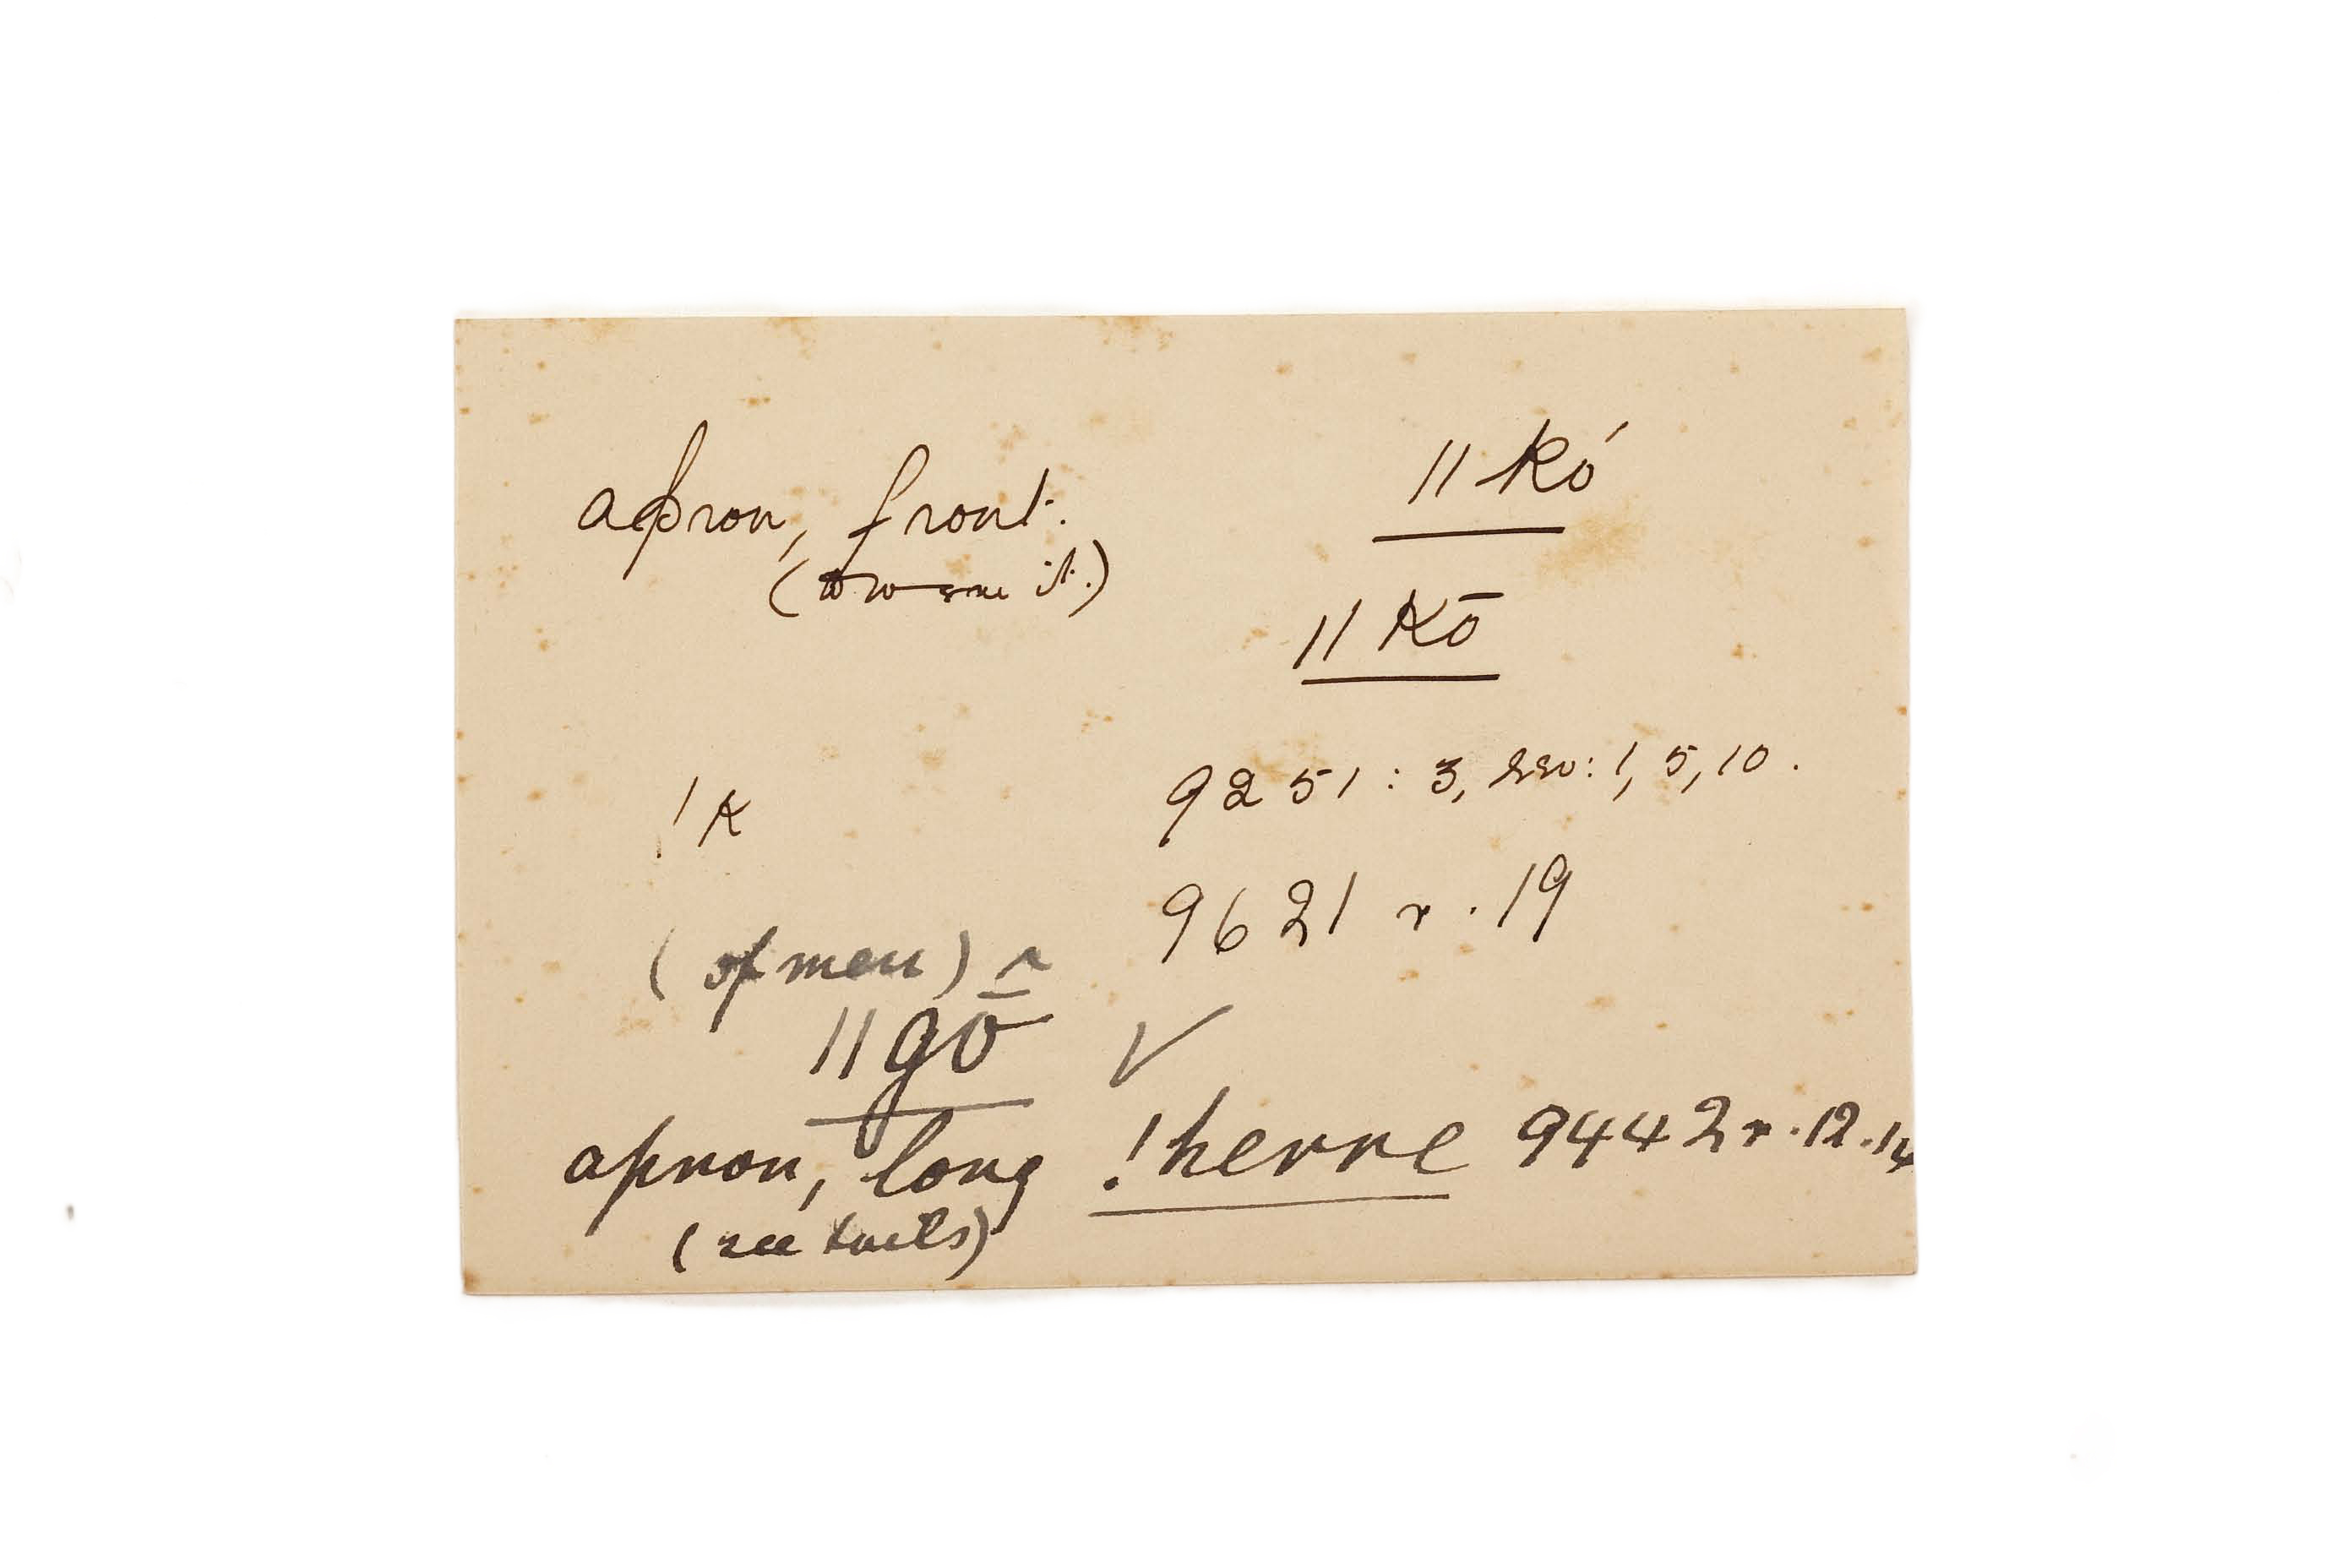 apron, front. || Kó
(to w it.)
|| Kō
! K 9251 : 3, rev: 1, 5, 10.
9621 r. 19
(of men)
|| gō ✓
apron, long !herre 9442 r. 12. 14
(see tails)